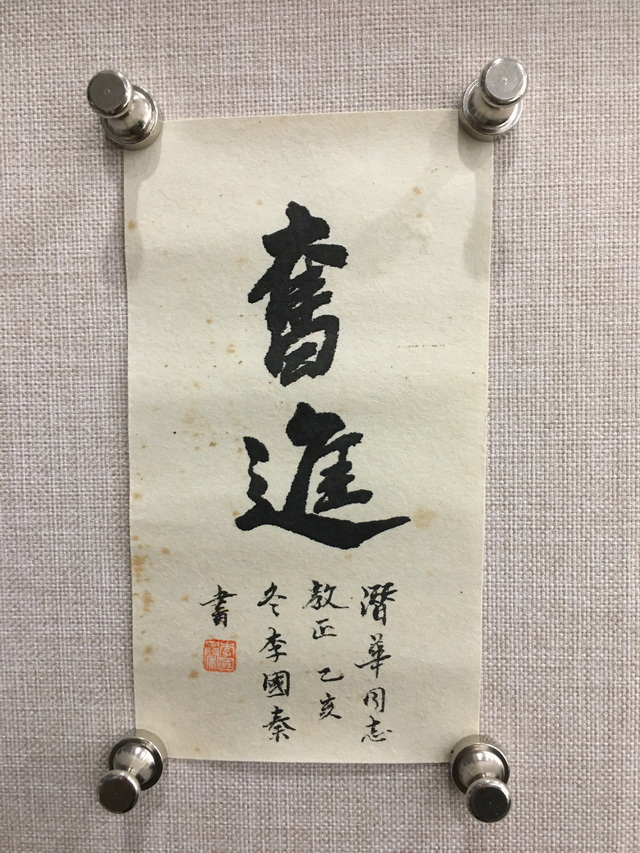 奮進
潛華同志
教正 乙亥
冬 李國秦
書